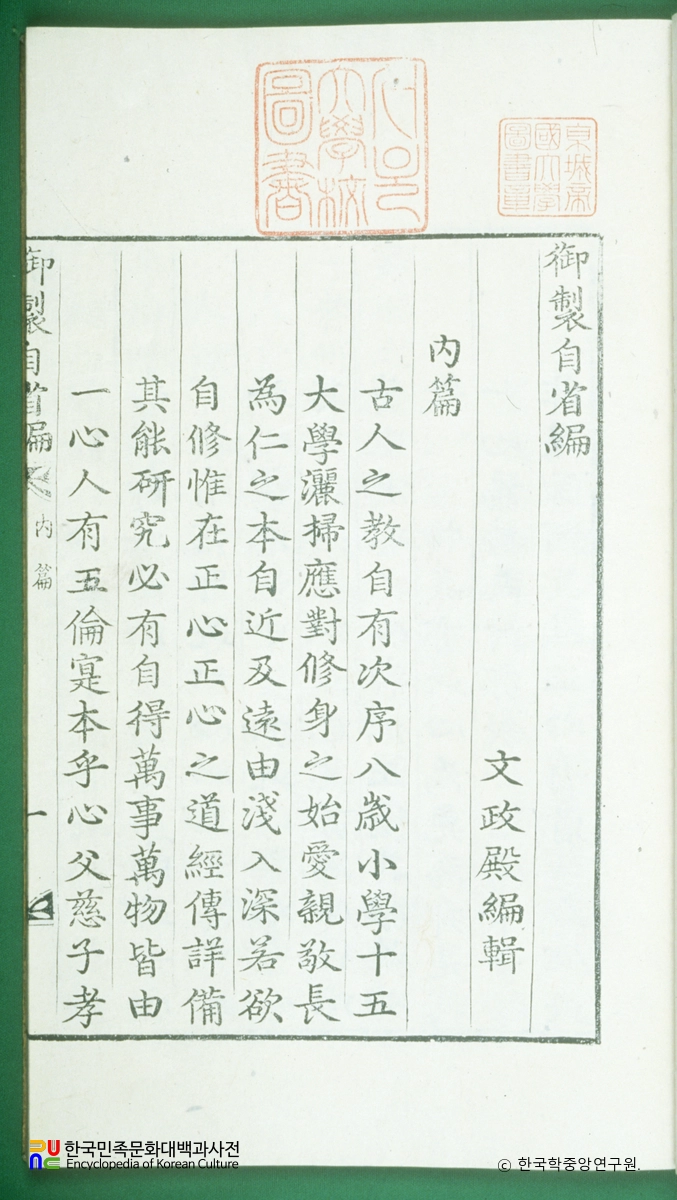 서울大學校圖書
京城帝國大學圖書章
御製自省編
文政殿編輯
內篇
古人之教自有次序八歲小學十五
大學灑掃應對修身之始愛親敬長
為仁之本自近及遠由淺入深若欲
自修惟在正心正心之道經傳詳備
其能研究必有自得萬事萬物皆由
一心人有五倫寔本乎心父慈子孝
御製自省編 內篇 一
한국민족문화대백과사전
Encyclopedia of Korean Culture
© 한국학중앙연구원.